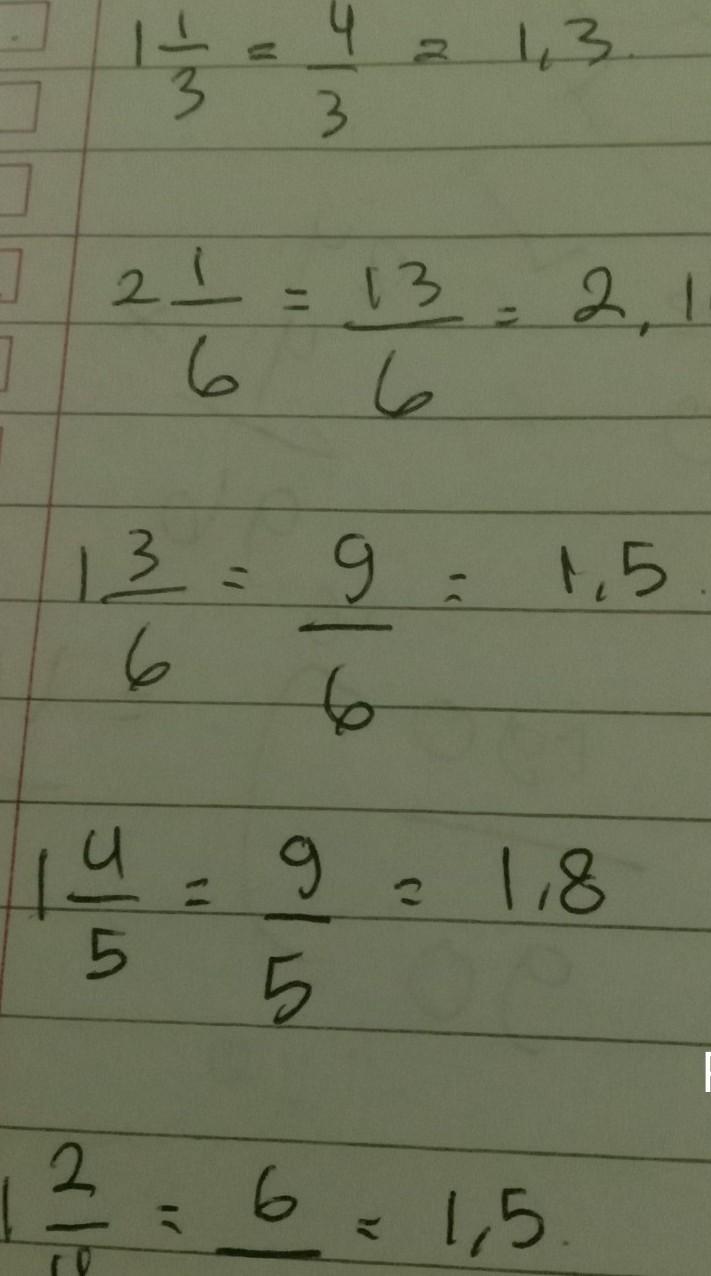 1 1/3 = 4/3 = 1,3
2 1/6 = 13/6 = 2,1
1 3/6 = 9/6 = 1,5
1 4/5 = 9/5 = 1,8
1 2/ = 6/ = 1,5